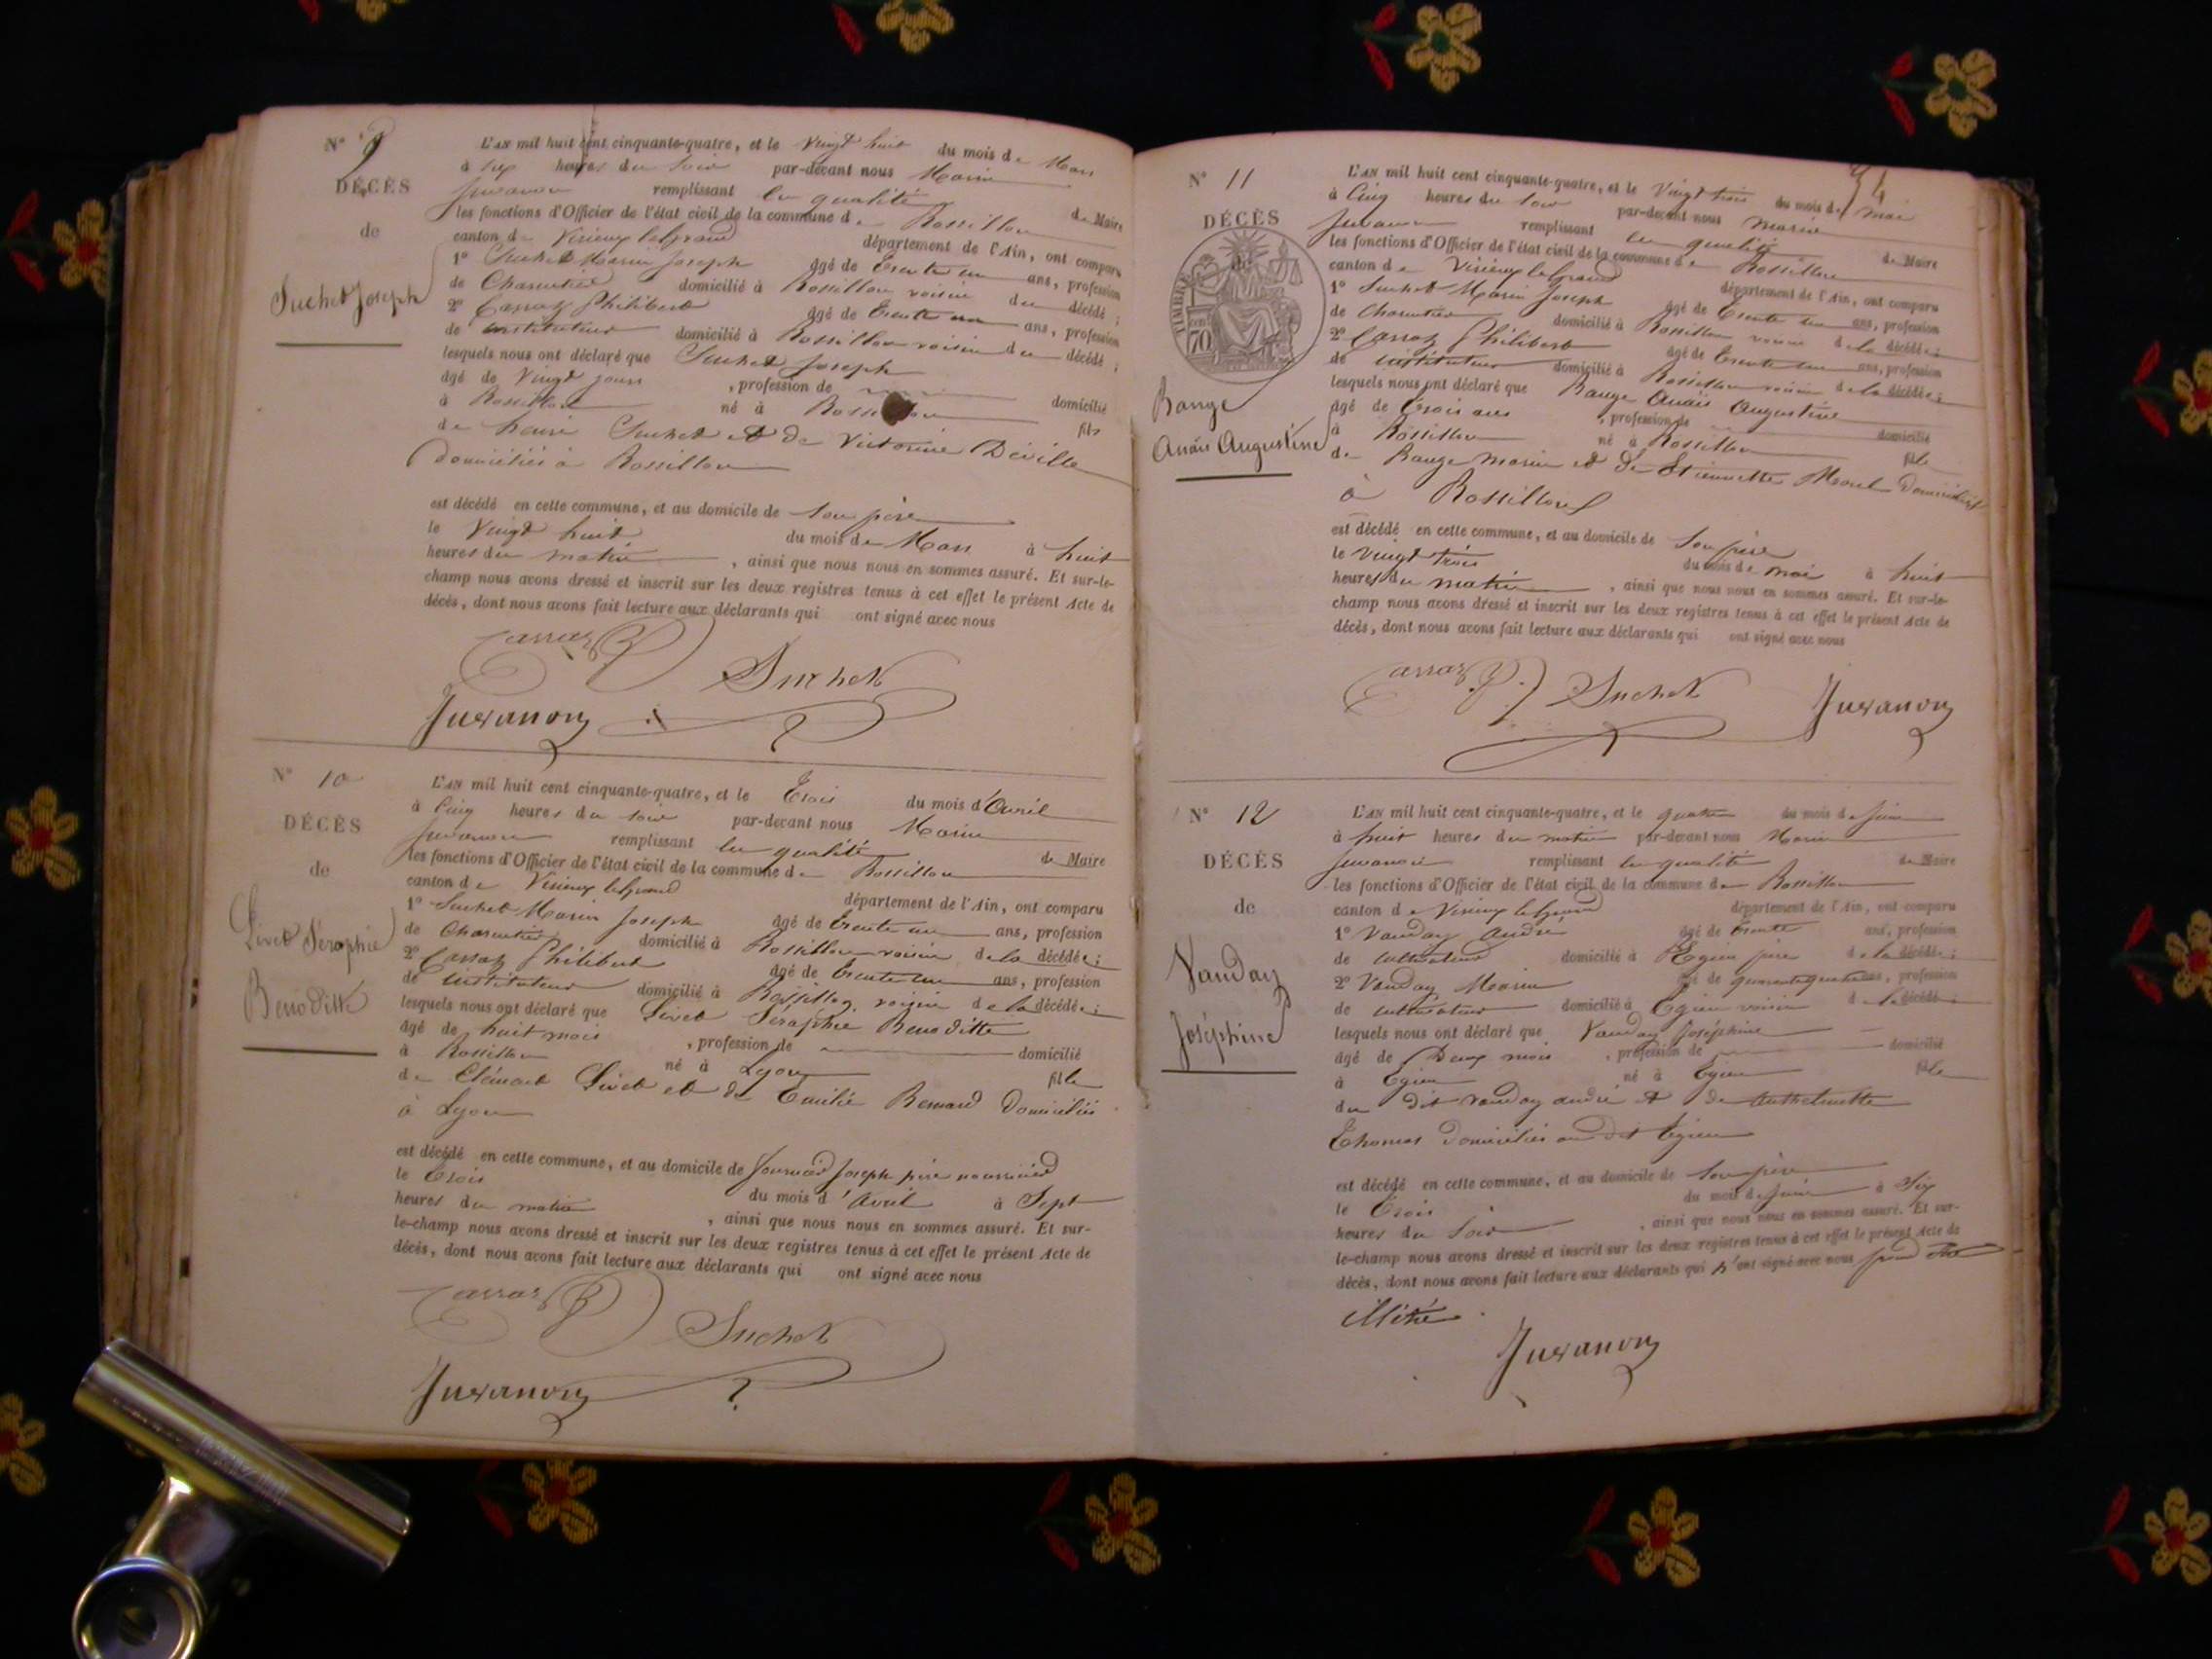 N° 9
DÉCÈS
de
Suchet Joseph
L'AN mil huit cent cinquante-quatre, et le Vingt huit du mois de Mars
à six heures du soir par-devant nous Marin
Juvanon remplissant la qualité de Maire
les fonctions d'Officier de l'état civil de la commune de Rossillon
canton de Virieux le grand département de l'Ain, ont comparu
1° Suchet Marin Joseph âgé de trente un ans, profession
de Charcutier domicilié à Rossillon voisin du décédé ;
2° Carraz Philibert âgé de trente un ans, profession
de instituteur domicilié à Rossillon voisin du décédé ;
lesquels nous ont déclaré que Suchet Joseph
âgé de Vingt jours , profession de domicilié
à Rossillon né à Rossillon fils
de Suchet et de Victorine Déville
domiciliés à Rossillon
est décédé en cette commune, et au domicile de son père
le Vingt huit du mois de Mars à huit
heures du matin , ainsi que nous nous en sommes assuré. Et sur-le-
champ nous avons dressé et inscrit sur les deux registres tenus à cet effet le présent Acte de
décès, dont nous avons fait lecture aux déclarants qui ont signé avec nous
Carraz P
Suchet
Juvanon
N° 10
DÉCÈS
de
Livet Séraphie
Benoditte
L'AN mil huit cent cinquante-quatre, et le trois du mois d'Avril
à Cinq heures du soir par-devant nous Marin
Juvanon remplissant la qualité de Maire
les fonctions d'Officier de l'état civil de la commune de Rossillon
canton de Virieux le grand département de l'Ain, ont comparu
1° Suchet Marin Joseph âgé de trente un ans, profession
de Charcutier domicilié à Rossillon voisin de la décédée ;
2° Carraz Philibert âgé de trente un ans, profession
de instituteur domicilié à Rossillon voisin de la décédée ;
lesquels nous ont déclaré que Livet Séraphie Benoditte
âgé de huit mois , profession de domicilié
à Rossillon né à Lyon fille
de Clément Livet et de Emilie Bernard domiciliés
à Lyon
est décédé en cette commune, et au domicile de Joseph père nourricier
le trois du mois d'Avril à Sept
heures du matin , ainsi que nous nous en sommes assuré. Et sur-
le-champ nous avons dressé et inscrit sur les deux registres tenus à cet effet le présent Acte de
décès, dont nous avons fait lecture aux déclarants qui ont signé avec nous
Carraz P
Suchet
Juvanon
N° 11
DÉCÈS
de
TIMBRE
70
Range
Anaïs Augustine
L'AN mil huit cent cinquante-quatre, et le Vingt trois du mois de mai
à Cinq heures du soir par-devant nous Marin
Juvanon remplissant la qualité de Maire
les fonctions d'Officier de l'état civil de la commune de Rossillon
canton de Virieux le grand département de l'Ain, ont comparu
1° Suchet Marin Joseph âgé de trente un ans, profession
de Charcutier domicilié à Rossillon voisin de la décédée ;
2° Carraz Philibert âgé de trente un ans, profession
de instituteur domicilié à Rossillon voisin de la décédée ;
lesquels nous ont déclaré que Range Anaïs Augustine
âgé de trois ans , profession de domicilié
à Rossillon né à Rossillon fille
de Range Marin et de Etiennette Morel domiciliés
à Rossillon
est décédé en cette commune, et au domicile de son père
le vingt trois du mois de mai à huit
heures du matin , ainsi que nous nous en sommes assuré. Et sur-le-
champ nous avons dressé et inscrit sur les deux registres tenus à cet effet le présent Acte de
décès, dont nous avons fait lecture aux déclarants qui ont signé avec nous
Carraz P.
Suchet
Juvanon
N° 12
DÉCÈS
de
Vanday
Joséphine
L'AN mil huit cent cinquante-quatre, et le quatre du mois de juin
à huit heures du matin par-devant nous Marin
Juvanon remplissant la qualité de Maire
les fonctions d'Officier de l'état civil de la commune de Rossillon
canton de Virieux le grand département de l'Ain, ont comparu
1° Vanday André âgé de trente ans, profession
de cultivateur domicilié à Egieu père de la décédée ;
2° Vanday Marin âgé de quarante quatre ans, profession
de cultivateur domicilié à Egieu voisin de la décédée ;
lesquels nous ont déclaré que Vanday Joséphine
âgé de Deux mois , profession de domicilié
à Egieu né à Egieu fille
du dit Vanday andré et de Anthelmette
Thomas domiciliés au dit Egieu
est décédé en cette commune, et au domicile de son père
le trois du mois de juin à Six
heures du soir , ainsi que nous nous en sommes assuré. Et sur-
le-champ nous avons dressé et inscrit sur les deux registres tenus à cet effet le présent Acte de
décès, dont nous avons fait lecture aux déclarants qui n'ont signé avec nous pour être
illitéré
Juvanon